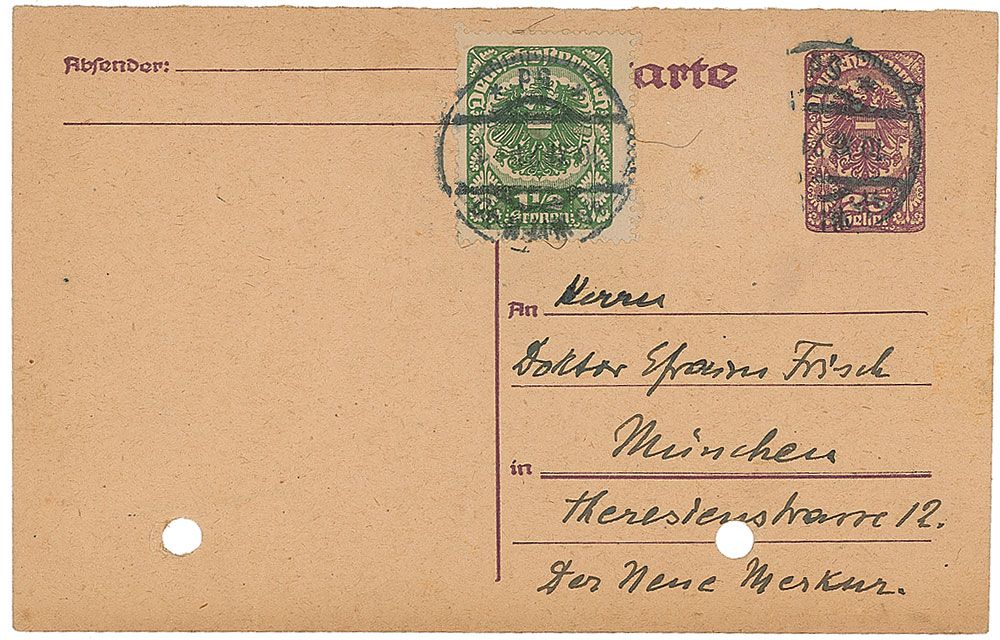 Absender:
arte
Deutschösterreich
1½
Kronen
25
Heller
An Herrn
Doktor Efraim Frisch
in München
Theresienstrasse 12.
Der Neue Merkur.